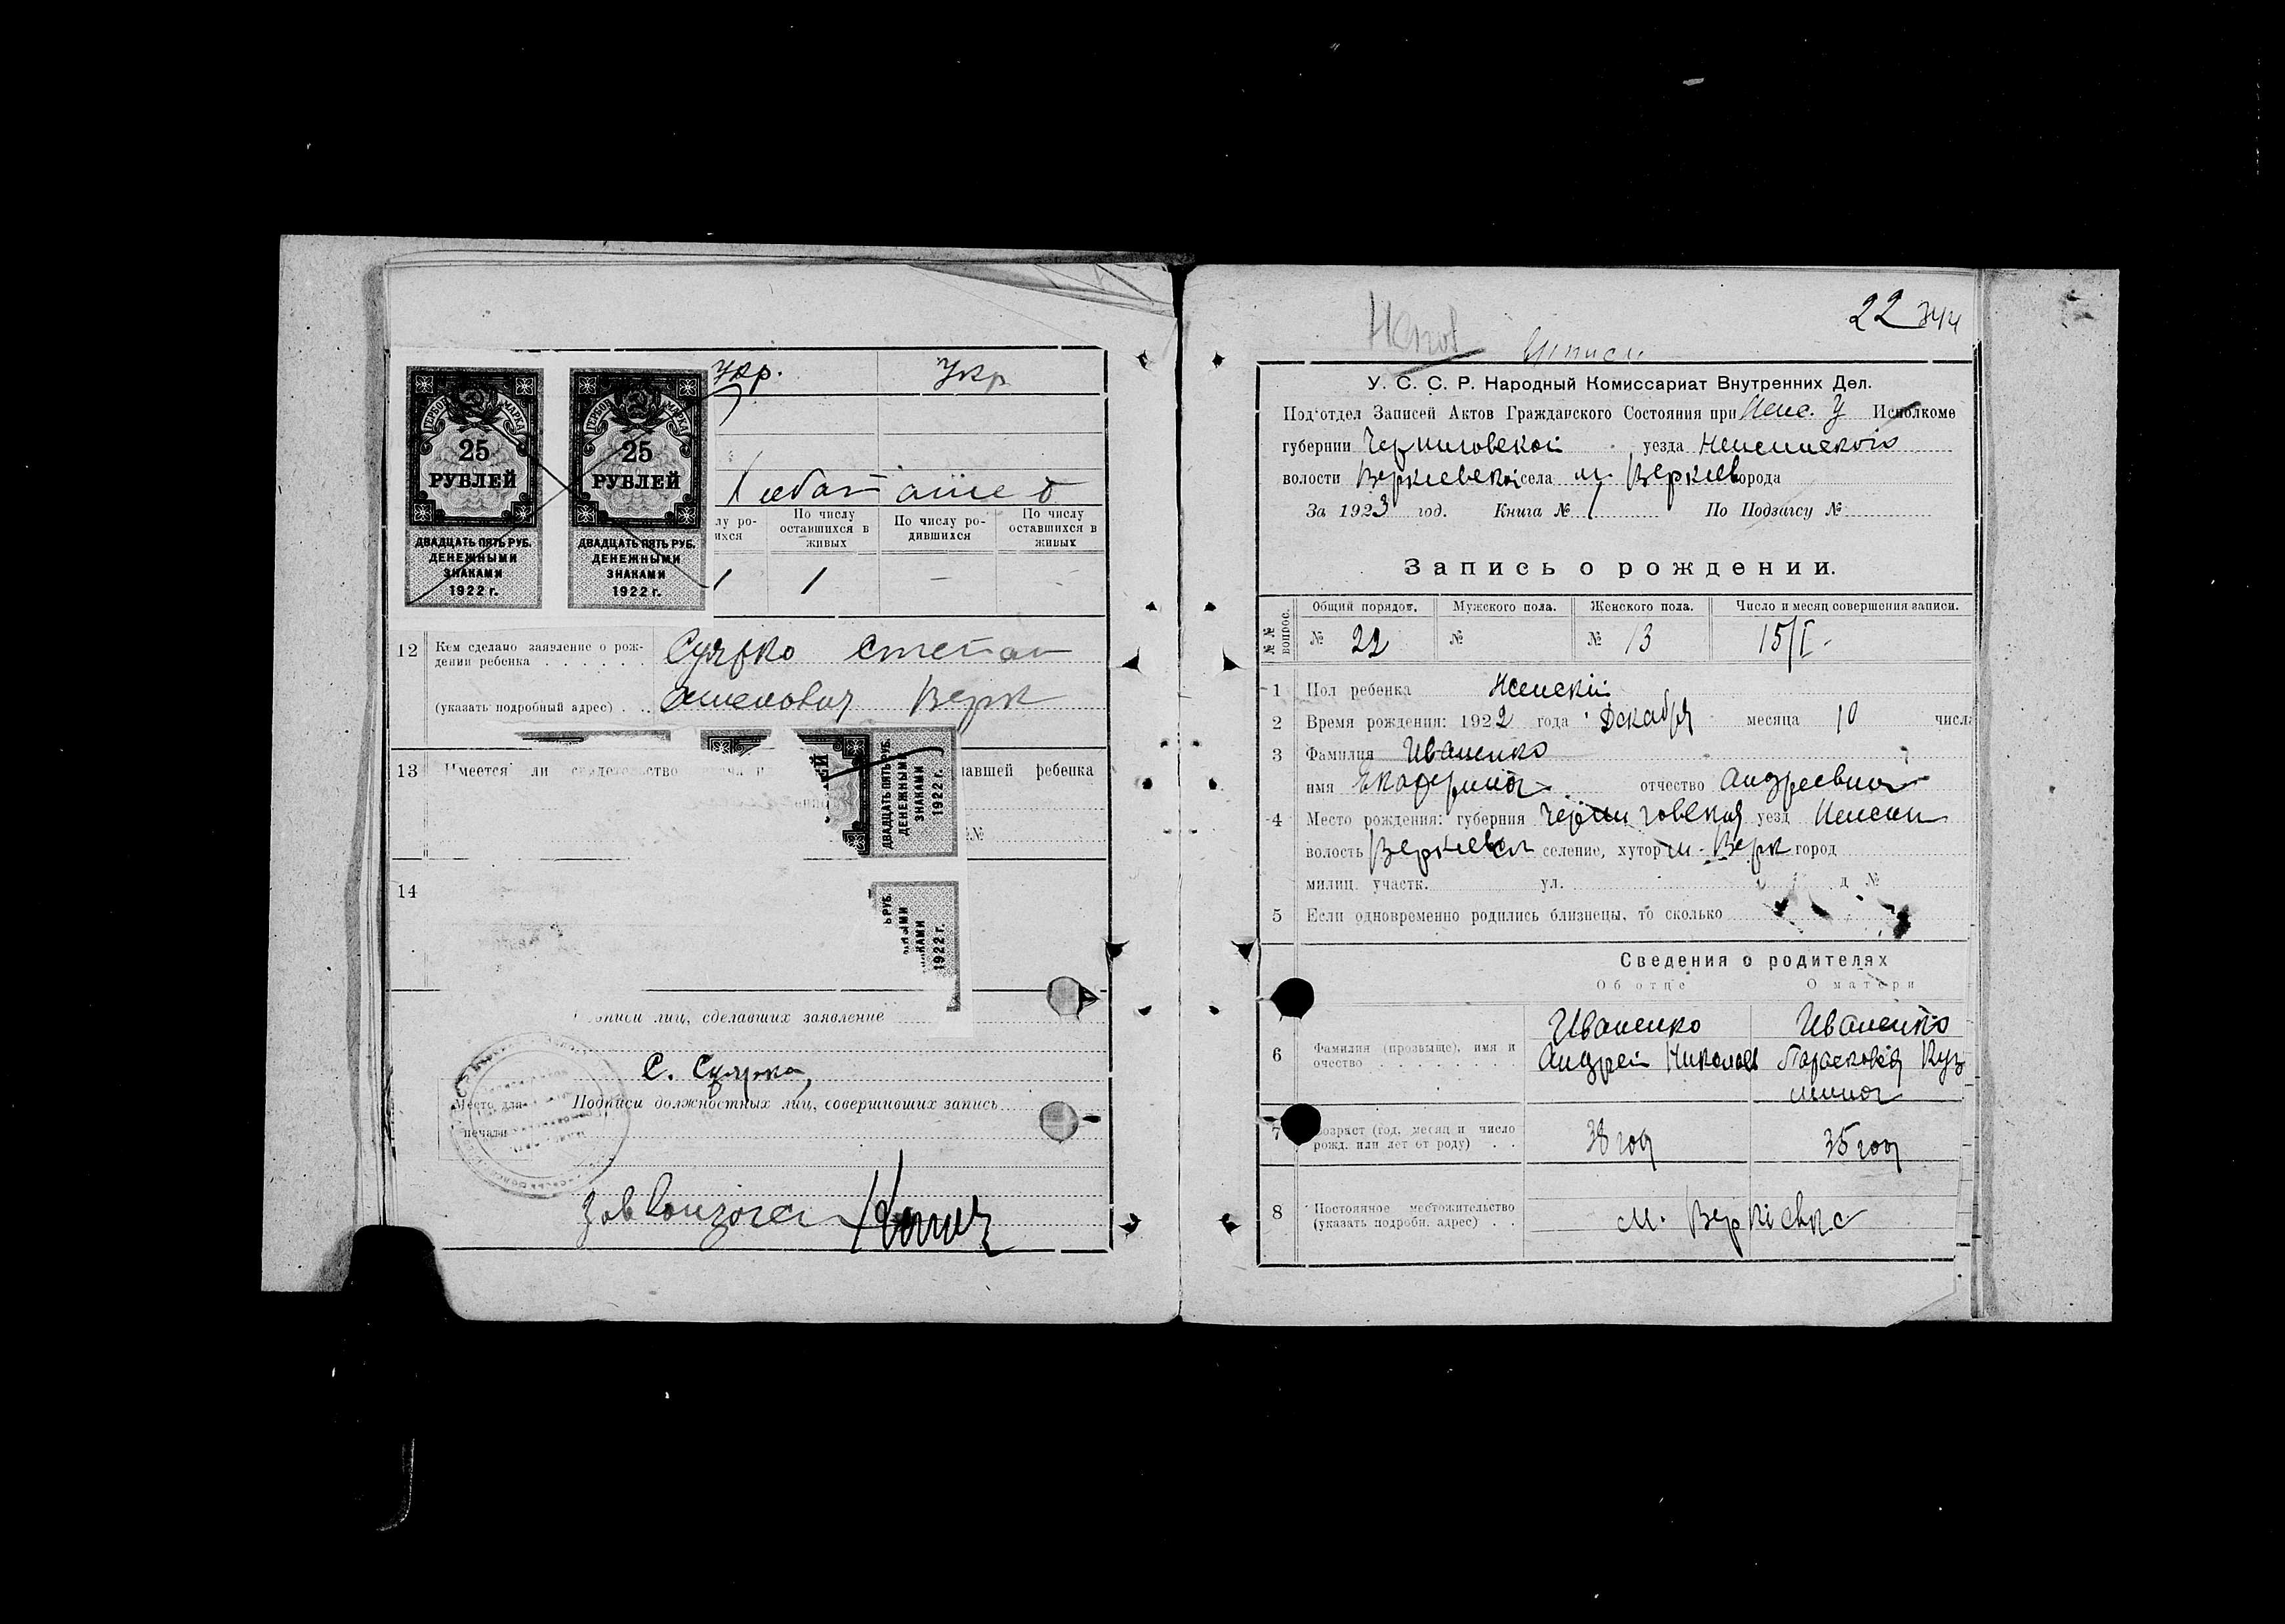 Укр.
Укр
ГЕРБОВ. МАРКА
25
РУБЛЕЙ
ДВАДЦАТЬ ПЯТЬ РУБ.
ДЕНЕЖНЫМИ
ЗНАКАМИ
1922 г.
ГЕРБОВ. МАРКА
25
РУБЛЕЙ
ДВАДЦАТЬ ПЯТЬ РУБ.
ДЕНЕЖНЫМИ
ЗНАКАМИ
1922 г.
лу ро-
ихся
По числу
оставшихся в
живых
По числу ро-
дившихся
По числу
оставшихся в
живых
1 1 — -
12 Кем сделано заявление о рож-
дении ребенка . . . . . . Степан
(указать подробный адрес) . . . Верк
13 Имеется ли свидетельство авшей ребенка
№
ДВАДЦАТЬ ПЯТЬ РУБ.
ДЕНЕЖНЫМИ
ЗНАКАМИ
1922 г.
14
Ь РУБ.
НЫМИ
НАКАМИ
1922 г.
описи лиц, сделавших заявление
С.
Место для
печати
Подписи должностных лиц, совершивших запись
22
У. С. С. Р. Народный Комиссариат Внутренних Дел.
Под‘отдел Записей Актов Гражданского Состояния при Исполкоме
губернии Черниговской уезда Неженского
волости Веркиевской села м. Веркиев орода
За 1923 год. Книга № 1 По Подзагсу №
Запись о рождении.
№№ вопрос.
Общий порядов. Мужского пола. Женского пола. Число и месяц совершения записи.
№ 22 № № 13 15/I -
1 Пол ребенка Женский
2 Время рождения: 1922 года Декабря месяца 10 числа
3 Фамилия Иваненко
имя Екатерина отчество Андреевна
4 Место рождения: губерния Черниговская уезд Нежен
волость Веркиевск селение, хутор м. Верк город
милиц. участк. ул. д №
5 Если одновременно родились близнецы, то сколько
Сведения о родителях
Об отце О матери
Иваненко Иваненко
6 Фамилия (прозвище), имя и
очество . . . . . . . . Андрей Николаев Парасковия Куз
минов
7 Возраст (год, месяц и число
рожд. или лет от роду) . . 38 год 35 год
8 Постоянное местожительство
(указать подробн. адрес) . . м. Веркіевка